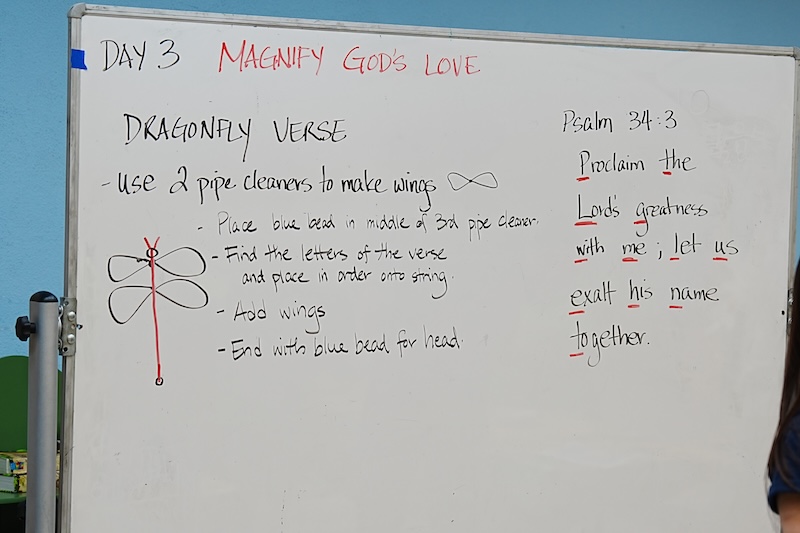 DAY 3 MAGNIFY GOD'S LOVE
DRAGONFLY VERSE
- use 2 pipe cleaners to make wings
- Place blue bead in middle of 3rd pipe cleaner.
- Find the letters of the verse
and place in order onto string.
- Add wings
- End with blue bead for head.
Psalm 34:3
Proclaim the
Lord's greatness
with me; let us
exalt his name
together.